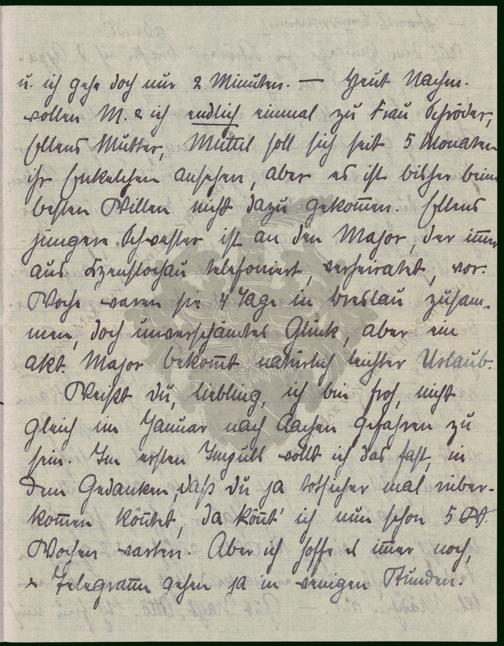 u. ich gehe doch nur 2 Minuten. — Heut Nachm.
wollen M. & ich endlich einmal zu Frau Schröder,
Ellens Mutter, Muttel soll sich seit 5 Monaten
ihr Enkelchen ansehen, aber es ist bisher beim
besten Willen nicht dazu gekom̅en. Ellens
jüngere Schwester ist an den Major, der im̅er
aus Czenstochau telefoniert, verheiratet, vor.
Woche waren sie 4 Tage in Breslau zusam-
men, doch unverschämtes Glück, aber ein
akt. Major bekom̅t natürlich leichter Urlaub.
Weißt du, liebling, ich bin froh, nicht
gleich im Januar nach Aachen gefahren zu
sein. Im ersten Impuls wollt ich das fast, in
dem Gedanken, daß du ja totsicher mal rüber-
kom̅en kön̅test, da kön̅t' ich nun schon 5
Wochen warten. Aber ich hoffe es im̅er noch,
& Telegram̅e gehen ja in wenigen Stunden.